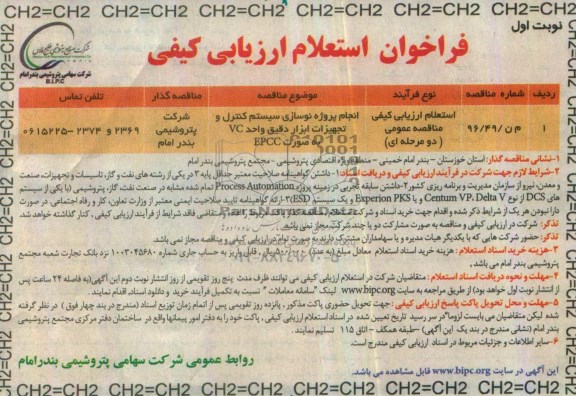 CH2=CH2 CH2=CH2 CH2=CH2 CH2=CH2 CH2=CH2 CH2=CH2
نوبت اول
فراخوان استعلام ارزیابی کیفی
شرکت سهامی پتروشیمی بندرامام
B.I.P.C
ردیف شماره مناقصه نوع فرآیند موضوع مناقصه مناقصه گذار تلفن تماس
۱ م ن /۹۶/۴۹ استعلام ارزیابی کیفی مناقصه عمومی ( دو مرحله ای) انجام پروژه نوسازی سیستم کنترل و تجهیزات ابزار دقیق واحد VC به صورت EPCC شرکت پتروشیمی بندر امام ۲۳۶۹ و ۲۳۷۴ – ۰۶۱۵۲۲۵
۱-نشانی مناقصه گذار: استان خوزستان – بندر امام خمینی – منطقه ویژه اقتصادی پتروشیمی – مجتمع پتروشیمی بندر امام
۲- شرایط لازم جهت شرکت در فرآیند ارزیابی کیفی و دریافت اسناد: ۱- داشتن گواهینامه صلاحیت معتبر حداقل پایه ۳ در یکی از رشته های نفت و گاز، تاسیسات و تجهیزات، صنعت
و معدن، نیرو از سازمان مدیریت و برنامه ریزی کشور ۲-داشتن سابقه تجربی در زمینه پروژه Process Automation تمام شده مشابه در صنعت نفت، گاز، پتروشیمی (با یکی از سیستم
های DCS از نوع Centum VP، Delta V و یا Experion PKS و یک سیستم ESD) ۳-ارائه گواهینامه تایید صلاحیت ایمنی معتبر از وزارت تعاون، کار و رفاه اجتماعی. در صورت
دارا نبودن هر یک از شرایط ذکر شده و اقدام جهت خرید اسناد و شرکت متقاضی فاقد شرایط از فرآیند ارزیابی کیفی، کنار گذاشته خواهد شد.
تذکر: شرکت در ارزیابی کیفی و مناقصه به صورت مشارکت دو یا چند شرکت مجاز نمی باشد.
تذکر: حضور شرکت هایی که با یکدیگر هیات مدیره و یا سهامداران مشترک دارند به صورت توام در ارزیابی کیفی و مناقصه مجاز نمی باشد.
۳-هزینه خرید اسناد استعلام : هزینه خرید اسناد استعلام معادل مبلغ ریال غیر قابل واریز به حساب جاری شماره ۱۰۰۳۰۴۵۶۸۰ نزد بانک تجارت شعبه مجتمع
پتروشیمی بندر امام می باشد.
۴-مهلت و نحوه دریافت اسناد استعلام : متقاضیان شرکت در استعلام ارزیابی کیفی می توانند ظرف مدت پنج روز تقویمی از روز انتشار نوبت دوم این آگهی(به فاصله ۲۴ ساعت پس
از انتشار نوبت اول خواهد بود) از طریق مراجعه به سایت www.bipc.org لینک "سامانه معاملات" نسبت به تکمیل فرآیند خرید و دانلود اسناد، اقدام نمایند.
۵-مهلت و محل تحویل پاکت پاسخ ارزیابی کیفی : جهت تحویل حضوری پاکت مذکور، پانزده روز تقویمی پس از اتمام زمان توزیع اسناد (مندرج در بند چهار فوق ) در نظر گرفته
شده لیکن متقاضیان می بایست لزوما"در سر رسید تاریخ تعیین شده در اسناد استعلام ارزیابی کیفی، پاکت خود را به دفتر امور پیمانها واقع در ساختمان دفتر مرکزی مجتمع پتروشیمی
بندر امام (نشانی مندرج در بند یک این آگهی) –طبقه همکف – اتاق ۱۱۵ تسلیم نمایند.
۶-سایر اطلاعات و جزئیات مربوط در اسناد ارزیابی کیفی مندرج است.
این آگهی در سایت www.bipc.org قابل مشاهده می باشد.
روابط عمومی شرکت سهامی پتروشیمی بندرامام
CH2=CH2 CH2=CH2 CH2=CH2 CH2=CH2 CH2=CH2 CH2=CH2